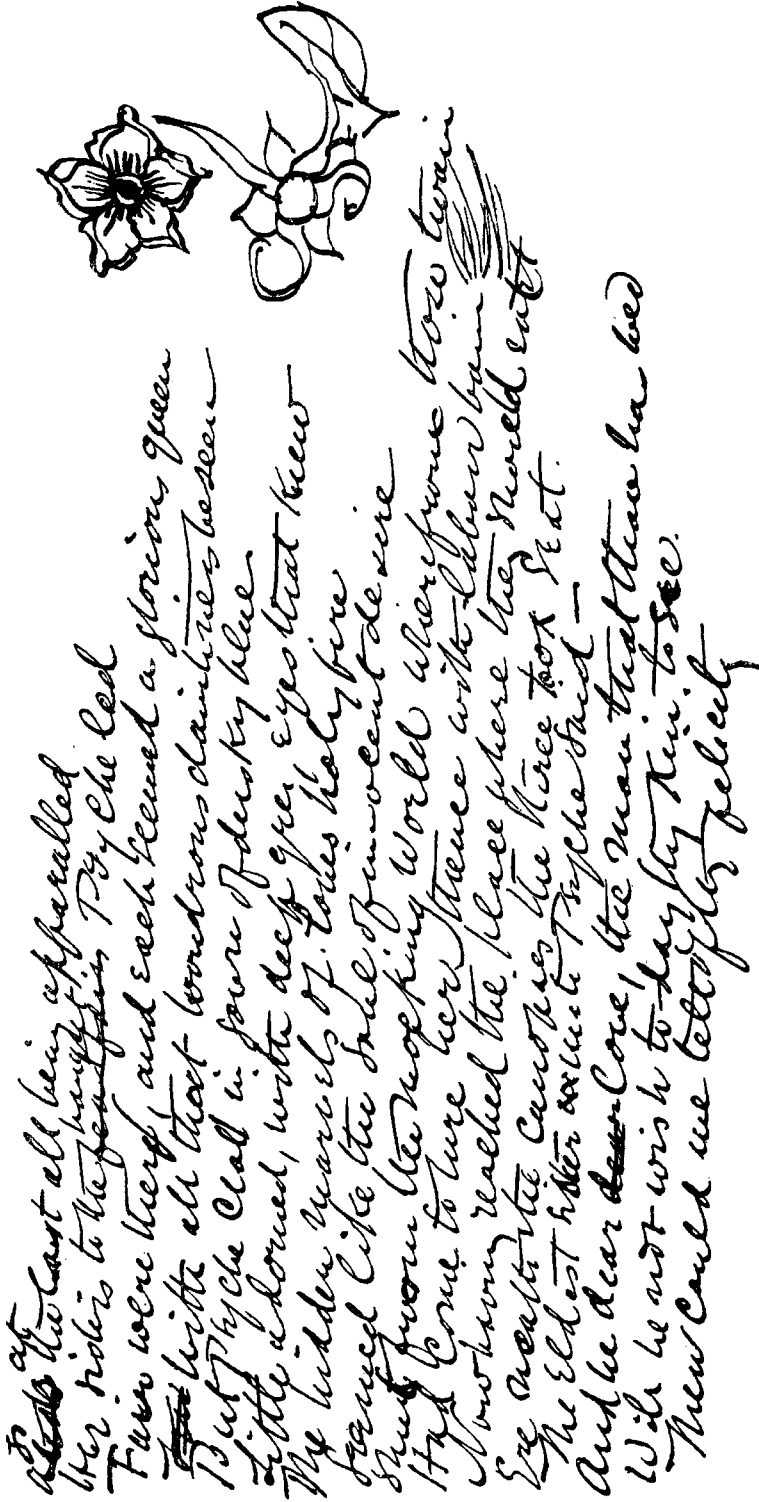 So at the last all being apparalled
Her sisters to the banquet Psyche led
Fair were they, and each seemed a glorious queen
With all that wondrous daintiness beseen
But Psyche clad in gown of dusky blue
Little adorned, with deep grey eyes that knew
The hidden marvels of Loves holy fire
Seemed like the soul of innocent desire
Shut from the mocking world wherefrom those twain
Had come to lure her thence with labour vain
Now having reached the place where they should eat
Ere neath the canopies the three took seat.
The eldest sister unto Psyche said —
And he dear Love, the man that thou hast wed
Will he not wish to-day thy kin to see.
Then could we tell of thy felicity